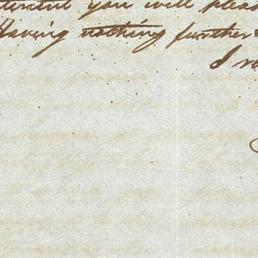 you will pleas
Having nothing further
I r